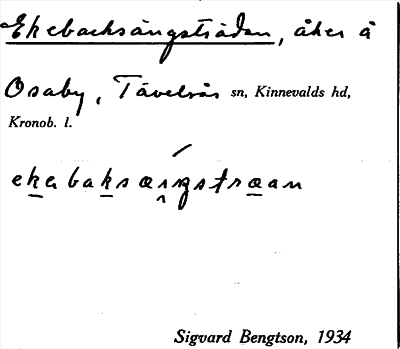 Ekebacksängsträdan, åker å
Osaby, Tävelsås sn, Kinnevalds hd,
Kronob. l.
Sigvard Bengtson, 1934